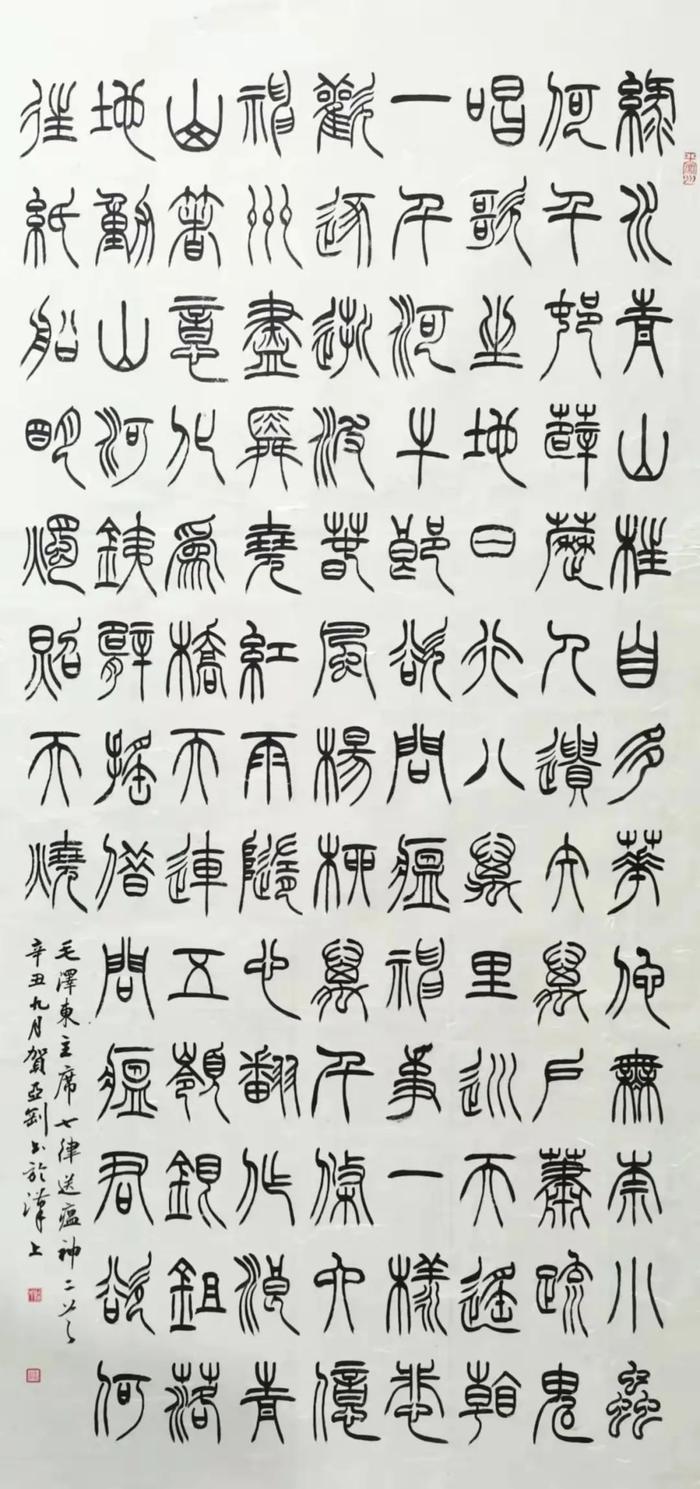 綠水青山枉自多華佗無奈小蟲
何千村薜荔人遺矢萬戶蕭疏鬼
唱歌坐地日行八萬里巡天遙看
一千河牛郎欲問瘟神事一樣悲
歡逐逝波春風楊柳萬千條六億
神州盡舜堯紅雨隨心翻作浪青
山著意化為橋天連五嶺銀鋤落
地動山河鐵臂搖借問瘟君欲何
往紙船明燭照天燒
毛澤東主席七律送瘟神二首
辛丑九月賀亞釗書於漢上